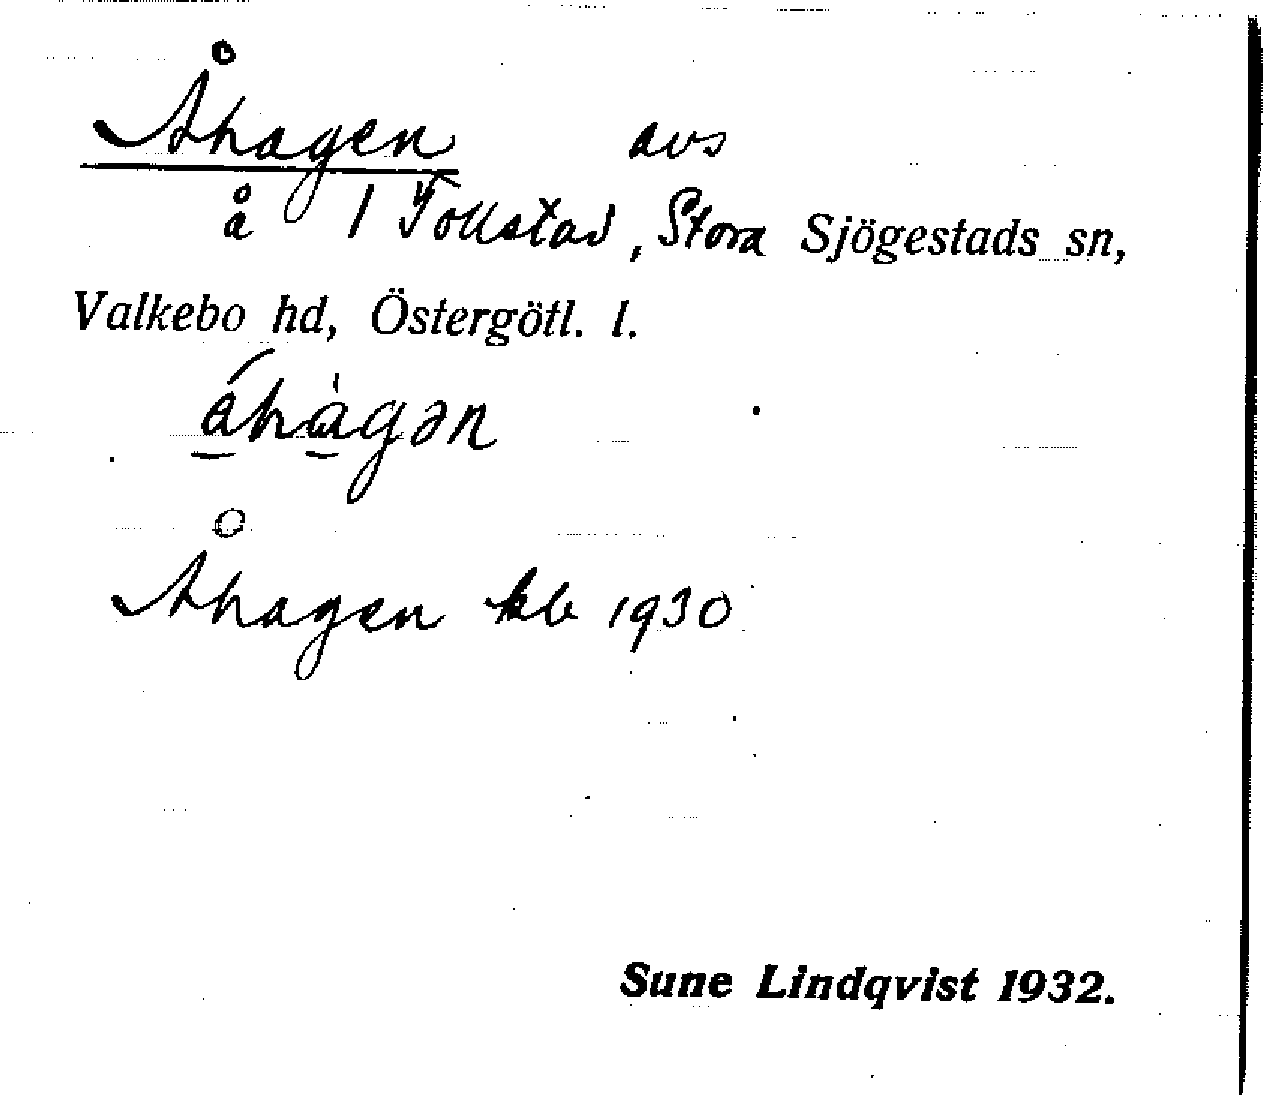 Åhagen avs
å 1 Tollstad, Stora Sjögestads sn,
Valkebo hd, Östergötl. l.
Åhagen kb 1930
Sune Lindqvist 1932.